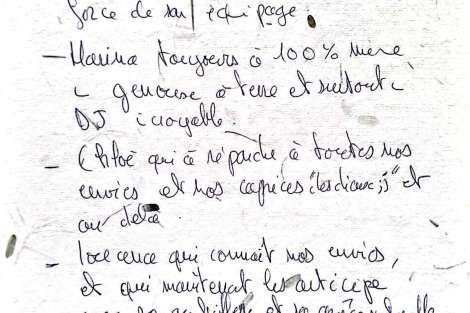 force de son équipage.
- Marina toujours à 100% même
genouse à terre et surtout
DJ incroyable.
- Chloé qui a répondu à toutes nos
envies et nos caprices "les dieux ;)" et
au delà.
- Innocence qui connait nos envies,
et qui maintenant les anticipe